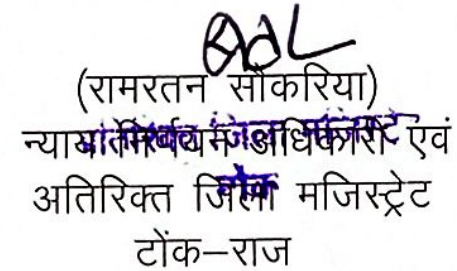 (रामरतन सौंकरिया)
न्याय निर्णयन अधिकारी एवं
अतिरिक्त जिला मजिस्ट्रेट
टोंक–राज